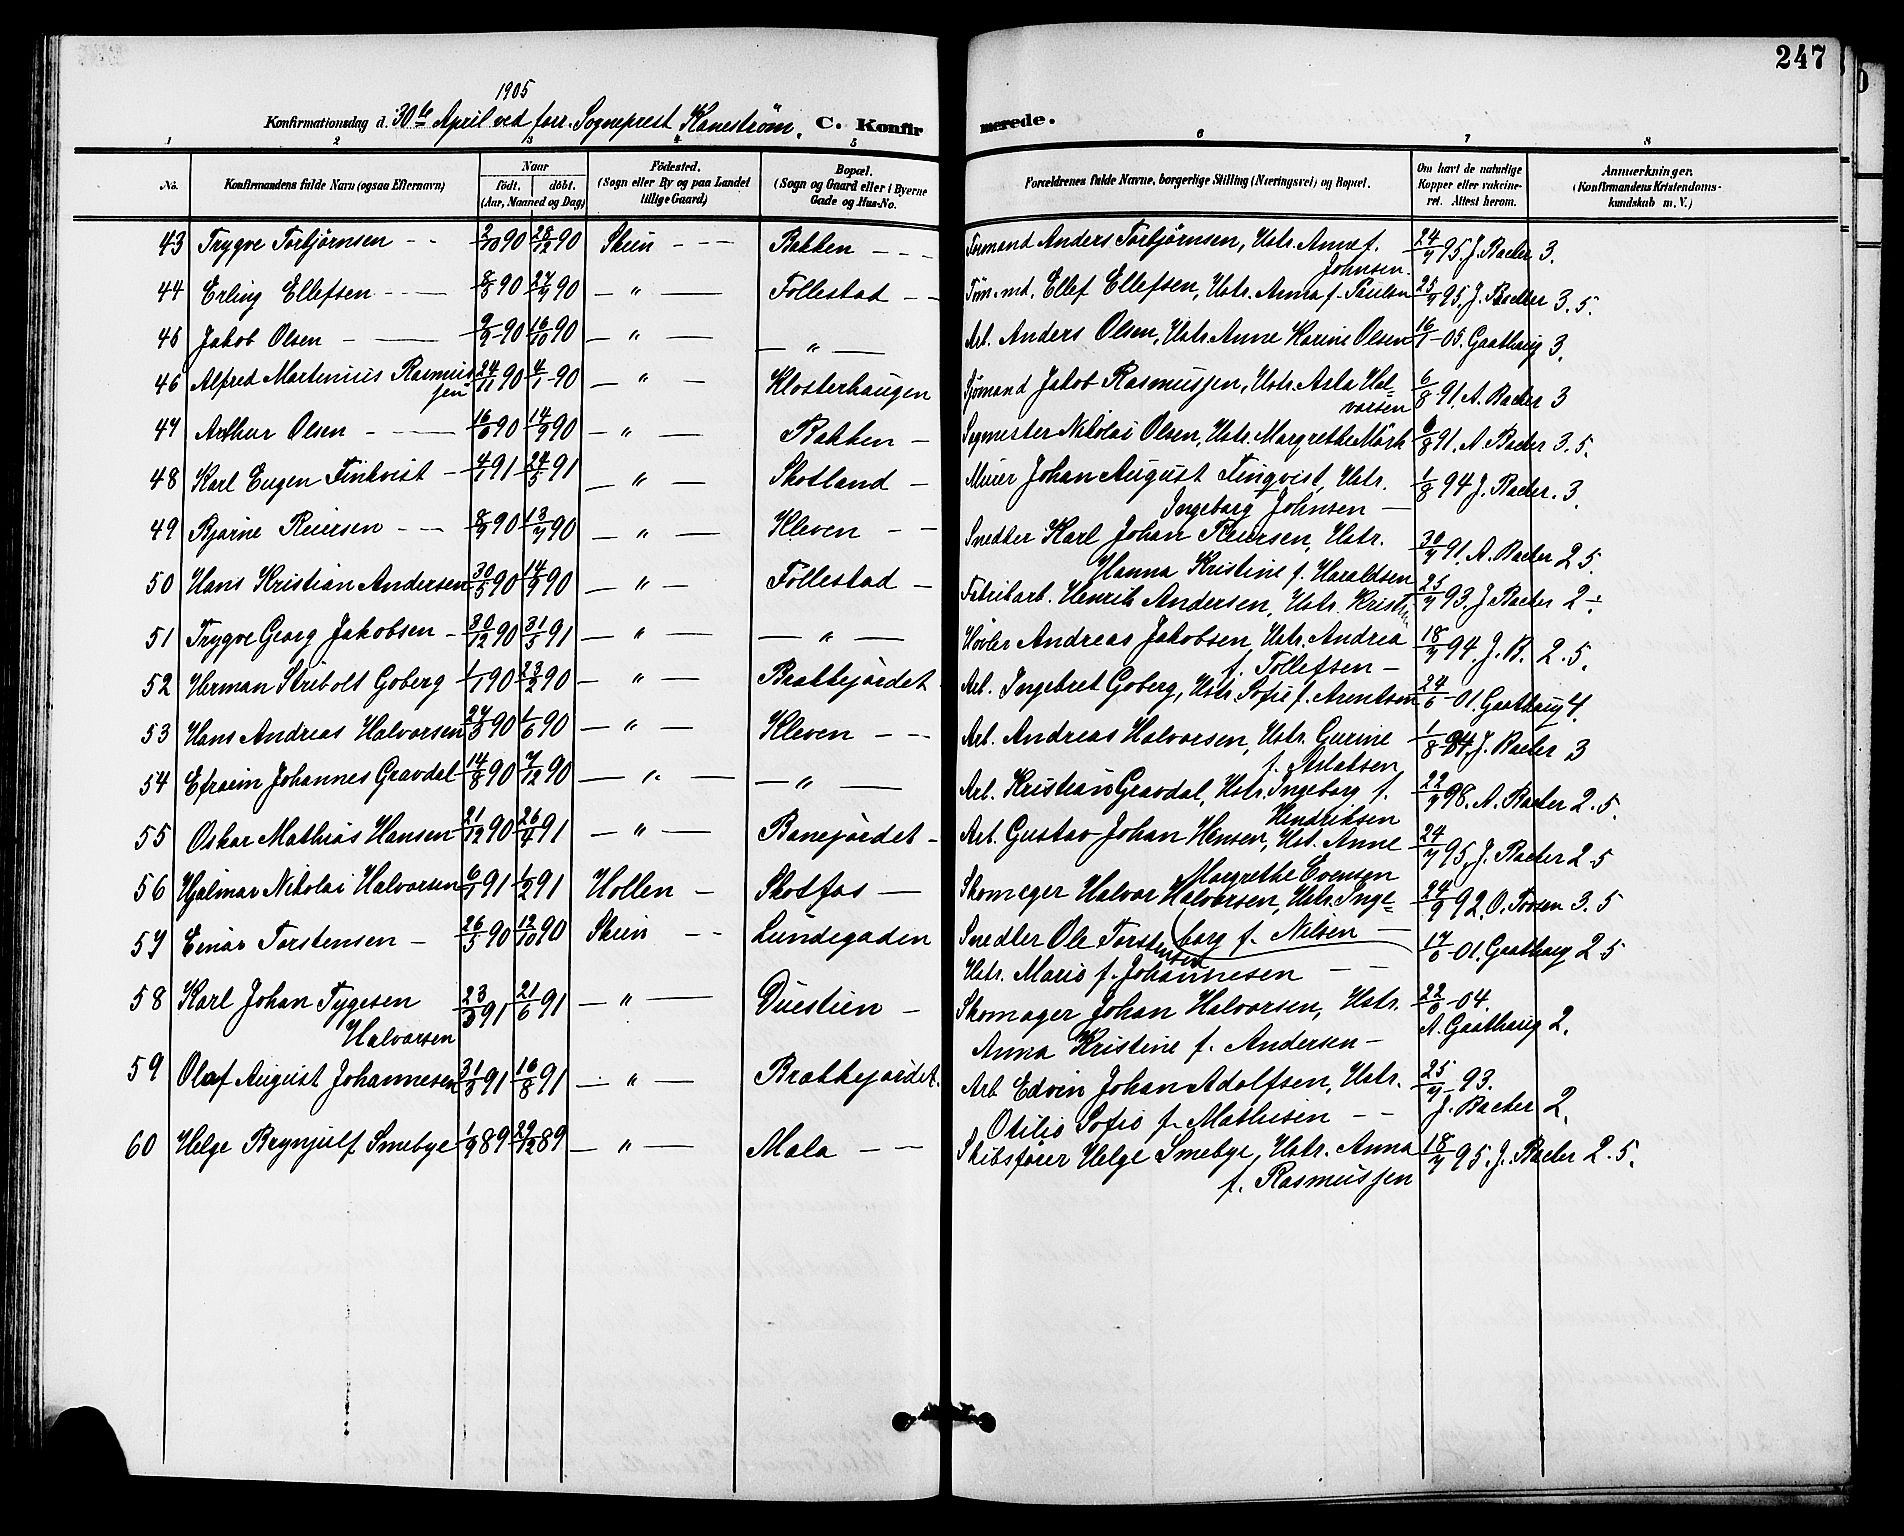 247
1905
Konfirmationsdag d. 30te April ved forr. Sogneprest Kanestrøm. C. Konfirmerede.
1 2 3 4 5 6 7 8
No. Konfirmandens fulde Navn (ogsaa Efternavn) Naar født, døbt. (Aar, Maaned og Dag) Fødested. (Sogn eller By og paa Landet tillige Gaard) Bopæl. (Sogn og Gaard eller i Byerne Gade og Hus-No. Forældrenes fulde Navne, borgerlige Stilling (Næringsvei) og Bopæl. Om havt de naturlige Kopper eller vakcineret. Attest herom. Anmærkninger. (Konfirmandens Kristendomskundskab m. V.)
43 Trygve Torbjørnsen 2/10 90 28/12 90 Skien Bakken Anders Torbjørnsen, Hstr. Anne f. Johnsen. 24/7 95. J. Backer 3.
44 Erling Ellefsen 8/8 90 27/9 90 " Follestad Ellef Ellefsen, Hstr. Anna f. Paulsen 25/7 95. J. Backer 3.5.
45 Jakob Olsen 9/9 90 16/10 90 " " Arb. Anders Olsen, Hstr. Anne Karine Olsen 16/1 05. Gaathaug 3.
46 Alfred Martinius Rasmussen 24/11 90 4/1 90 " Klosterhaugen Sjømand Jakob Rasmussen, Hstr. Asla Halvorsen 6/8 91. A. Backer 3
47 Arthur Olsen 16/6 90 14/9 90 " Bakken Sagmester Nikolai Olsen, Hstr. Margrethe Mørk 6/8 91. A. Backer 3.5.
48 Karl Eugen Finkvist 4/4 91 24/5 91 " Skotland Murer Johan August Finqvist, Hstr. Ingeborg Johnsen 1/8 94 J. Backer. 3.
49 Bjarne Reiersen 90 13/7 90 " Kleven Snedker Karl Johan Reiersen, Hstr. Hanna Kristine f. Haraldsen 30/7 91. A. Backer 2.5.
50 Hans Kristian Andersen 30/5 90 14/9 90 " Follestad Fabrikarb. Henrik Andersen, Hstr. 25/7 93. J. Backer 2 ÷
51 Trygve Georg Jakobsen 30/12 90 31/5 91 " " Høvler Andreas Jakobsen, Hstr. Andrea f. Tollefsen 18/7 94. J. B. 2.5.
52 Herman Stribolt Goberg 1/1 90 23/2 90 " Brekkejordet Arb. Ingebret Goberg, Hstr. Sofie f. Arentsen 24/6 01. Gaathaug 4.
53 Hans Andreas Halvorsen 27/3 90 1/6 90 " Kleven Arb. Andreas Halvorsen, Hstr. Gurine f. Aslaksen 1/8 94. J. Backer 3
54 Efraim Johannes Gravdal 14/8 90 7/12 90 " " Arb. Kristian Gravdal, Hstr. Ingeborg f. Hendriksen 98. A. Backer 2.5.
55 Oskar Mathias Hansen 21/12 90 26/4 91 " Banejordet Arb. Gustav Johan Hansen, Hst. Anne Margrethe Evensen 24/7 95. J. Backer 2.5
56 Hjalmar Nikolai Halvorsen 91 1/2 91 Hollen Skotfos Skomager Halvor Halvorsen, Hstr. Ingeborg f. Nilsen 24/9 92. 3.5
57 Einar Torstensen 26/5 90 12/10 90 Skien Lundegaden Snedker Ole Torstensen Hstr. Marie f. Johannesen 17/6 01. Gaathaug 2.5
58 Karl Johan Tygesen Halvorsen 23/3 91 21/6 91 " Duestien Skomager Johan Halvorsen, Hstr. Anna Kristine f. Andersen 22/6 04. A. Gaathaug 2.
59 Olaf August Johannesen 31/5 91 16/8 91 " Brekkejordet. Arb. Edvin Johan Adolfsen, Hstr. Otilie Sofie f. Mathisen 25/7 93. J. Backer 2.
60 Helge Brynjulf Smebye 1/9 89 29/12 89 " Mæla Skibsfører Helge Smebye, Hstr. Anna f. Rasmussen 18/7 95. J. Backer 2.5.